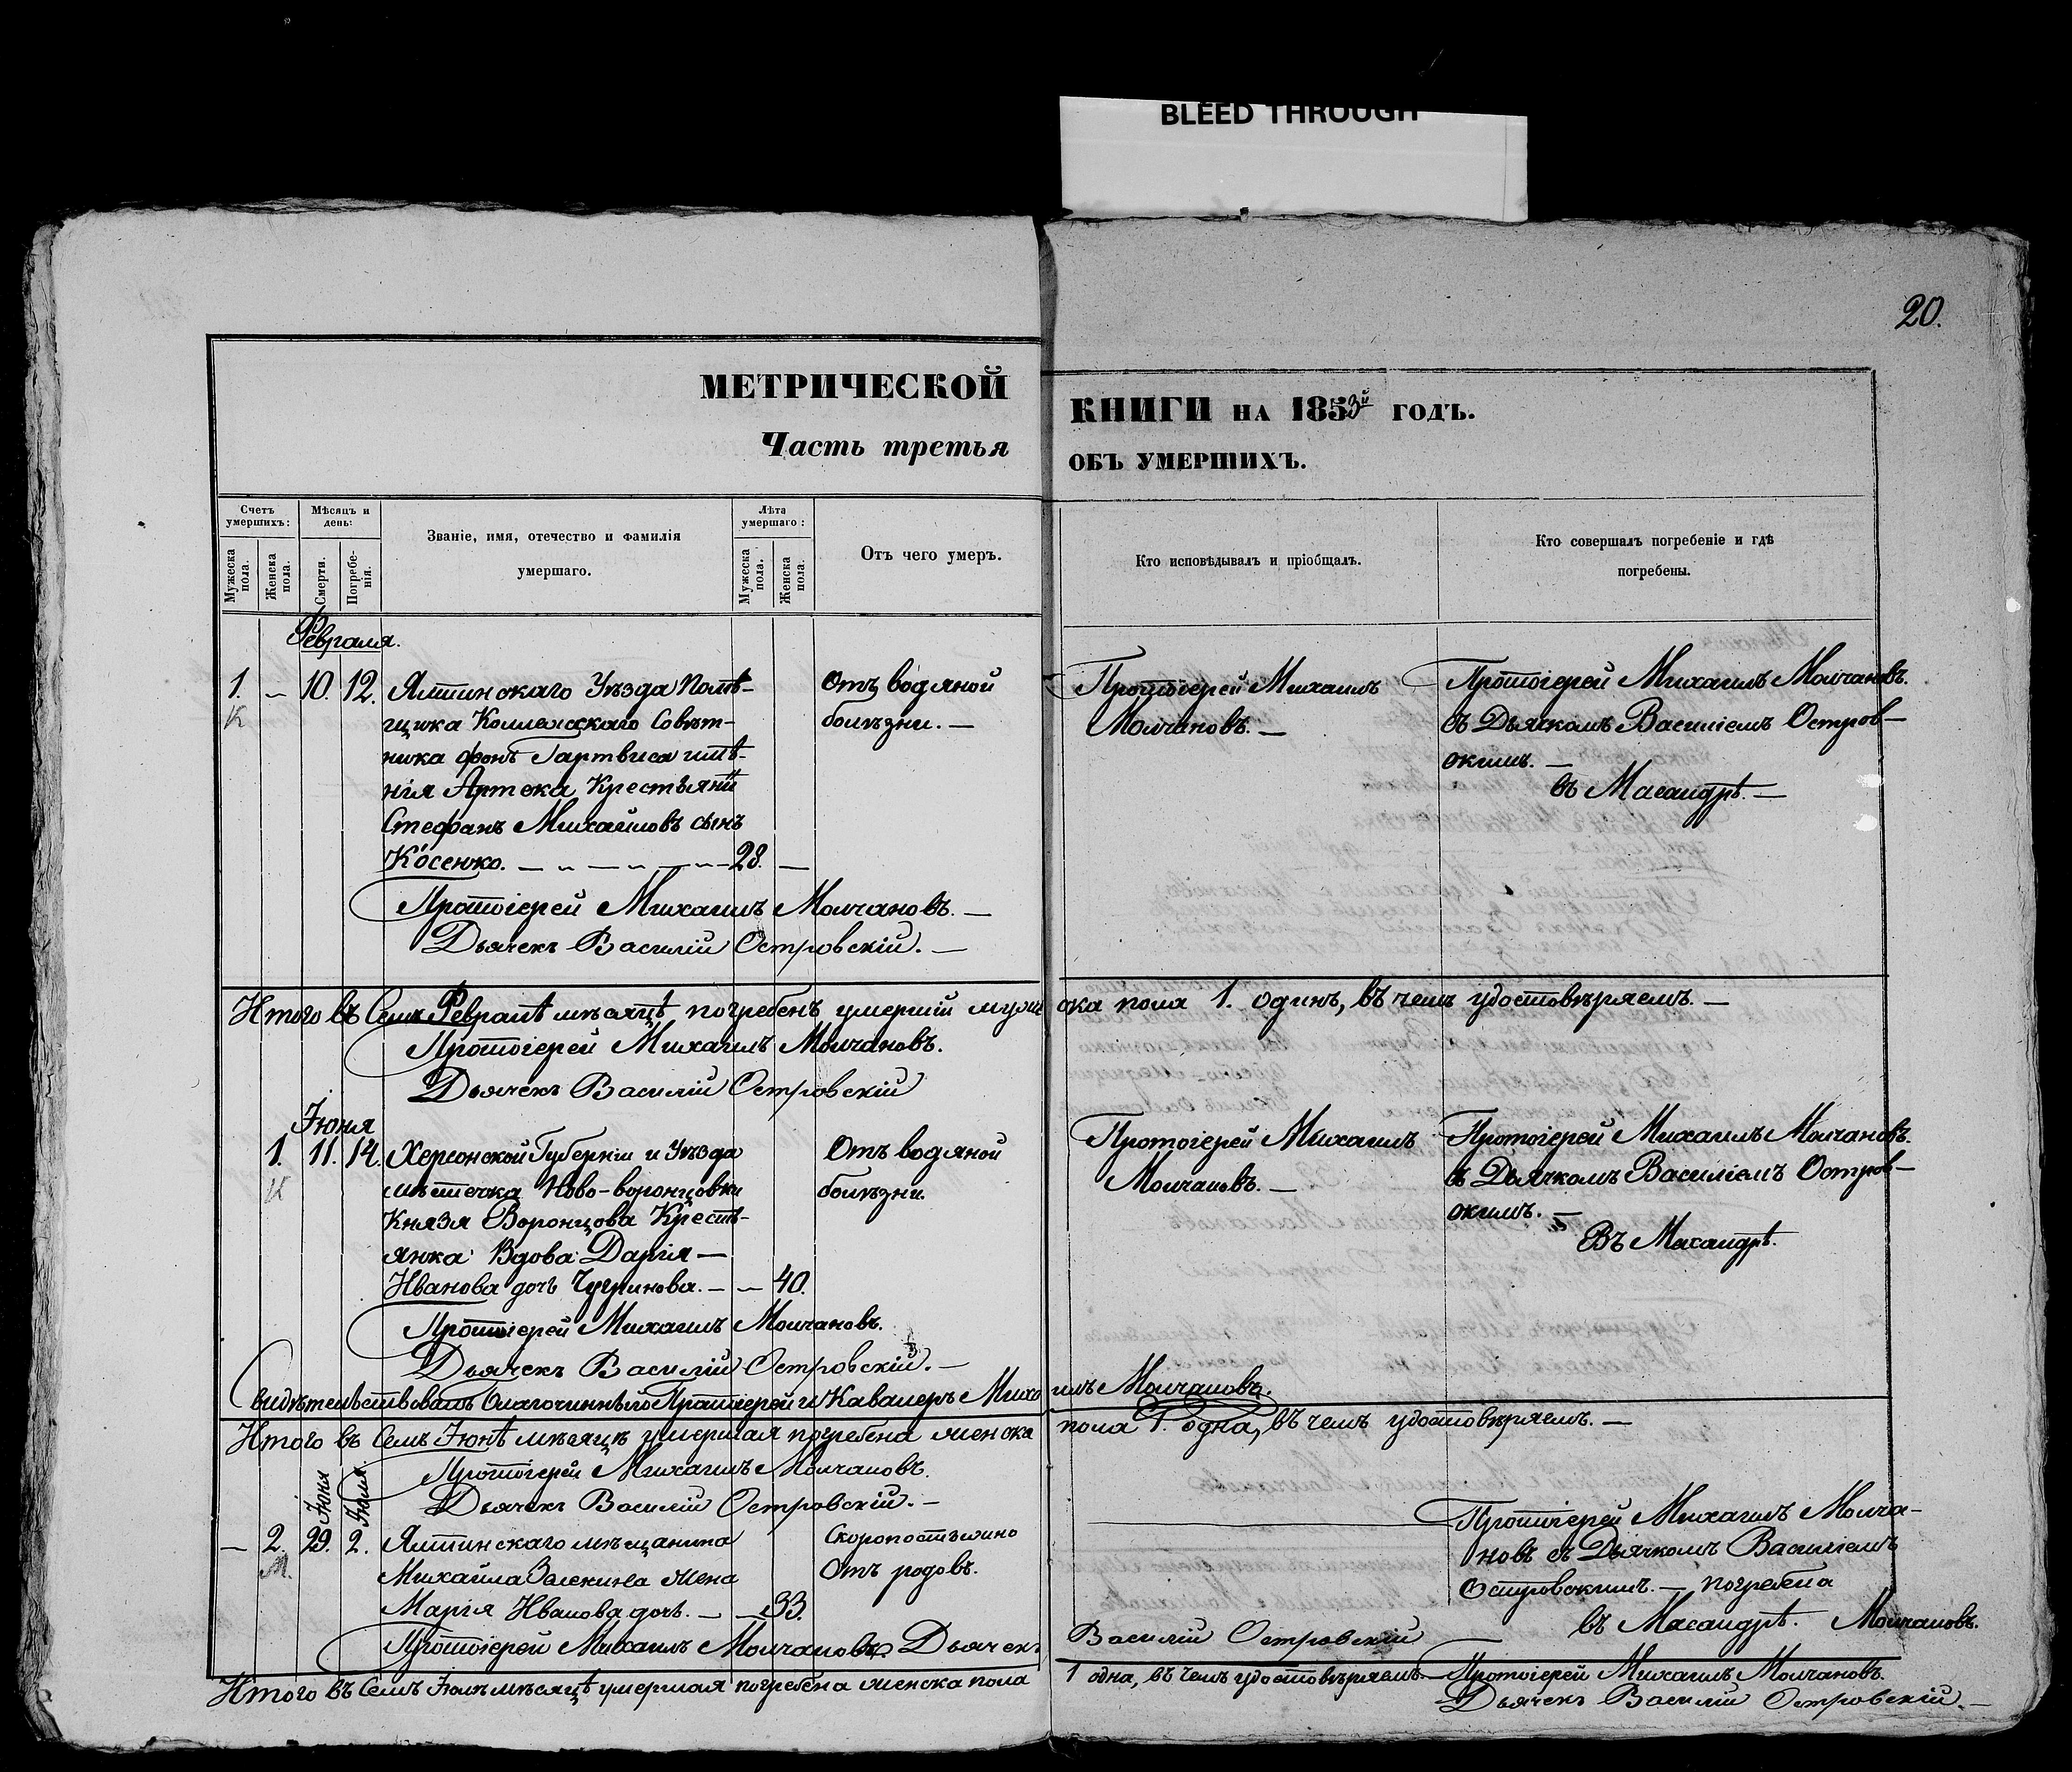 BLEED THROUGH
20.
МЕТРИЧЕСКОЙ
КНИГИ НА 1853й ГОДЪ.
Часть третья
ОБЪ УМЕРШИХЪ.
Счетъ умершихъ:
Мѣсяцъ и день:
Званіе, имя, отечество и фамилія
умершаго.
Лѣта умершаго:
Отъ чего умеръ.
Кто исповѣдывалъ и пріобщалъ.
Кто совершалъ погребеніе и гдѣ
погребены.
Мужеска пола.
Женска пола.
Смерти.
Погребе-нія.
Мужеска пола.
Женска пола.
Февраля.
1. — 10. 12. Ялтинскаго Уѣзда Помѣ-
К
щика Коллежскаго Совѣт-
ника фонъ Гартвиса имѣ-
нія Артека Крестьянинъ
Стефанъ Михайловъ сынъ
Косенко. — 28. —
Отъ водяной
болѣзни. —
Протоіерей Михаилъ
Молчановъ. —
Протоіерей Михаилъ Молчановъ.
съ Дьячкомъ Василіемъ Остров-
скимъ. —
въ Масандрѣ. —
Протоіерей Михаилъ Молчановъ. —
Дьячекъ Василій Островскій. —
Итого въ Семъ Февралѣ мѣсяцѣ погребенъ умершій мужеска пола 1. одинъ, въ чемъ удостовѣряемъ. —
Протоіерей Михаилъ Молчановъ.
Дьячекъ Василій Островскій
Іюня
1. 11. 14. Херсонской Губерніи и Уѣзда
мѣстечка Ново-воронцовки
Князя Воронцова Кресть-
янка Вдова Дарія —
Иванова дочь — 40.
Отъ водяной
болѣзни.
Протоіерей Михаилъ
Молчановъ. —
Протоіерей Михаилъ Молчановъ.
съ Дьячкомъ Василіемъ Остров-
скимъ. —
Въ Масандрѣ.
Протоіерей Михаилъ Молчановъ.
Дьячекъ Василій Островскій. —
Свидѣтельствовалъ Благочинный Протоіерей и Кавалеръ Михаилъ Молчановъ.
Итого въ Семъ Іюнѣ мѣсяцѣ умершая погребена женска пола 1. одна, въ чемъ удостовѣряемъ. —
Протоіерей Михаилъ Молчановъ.
Дьячекъ Василій Островскій. —
Іюня Іюля
— 2. 29. 2. Ялтинскаго мѣщанина
М.
Михайла жена
Марія Иванова дочь. — 33.
Скоропостижно
Отъ родовъ.
Протоіерей Михаилъ Молча-
новъ съ Дьячкомъ Василіемъ
Островскимъ. — погребена
въ Масандрѣ. Молчановъ.
Протоіерей Михаилъ Молчановъ Дьячекъ Василій Островскій
Итого въ Семъ Іюлѣ мѣсяцѣ умершая погребена женска пола 1 одна, въ чемъ удостовѣряемъ — Протоіерей Михаилъ Молчановъ.
Дьячекъ Василій Островскій. —